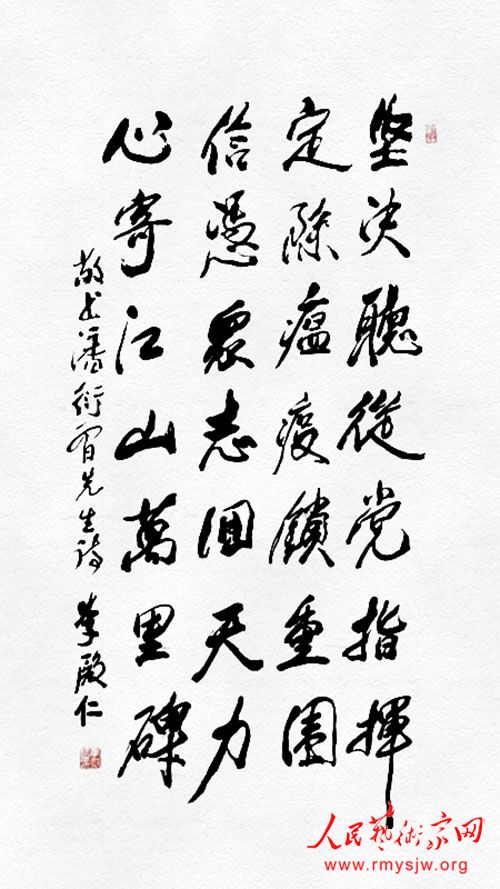 堅決聽從党指揮
定除瘟疫鎖重圍
信憑眾志回天力
心寄江山萬里碑
敬书潘衍習先生詩 李殿仁
人民藝術家网
www.rmysjw.org